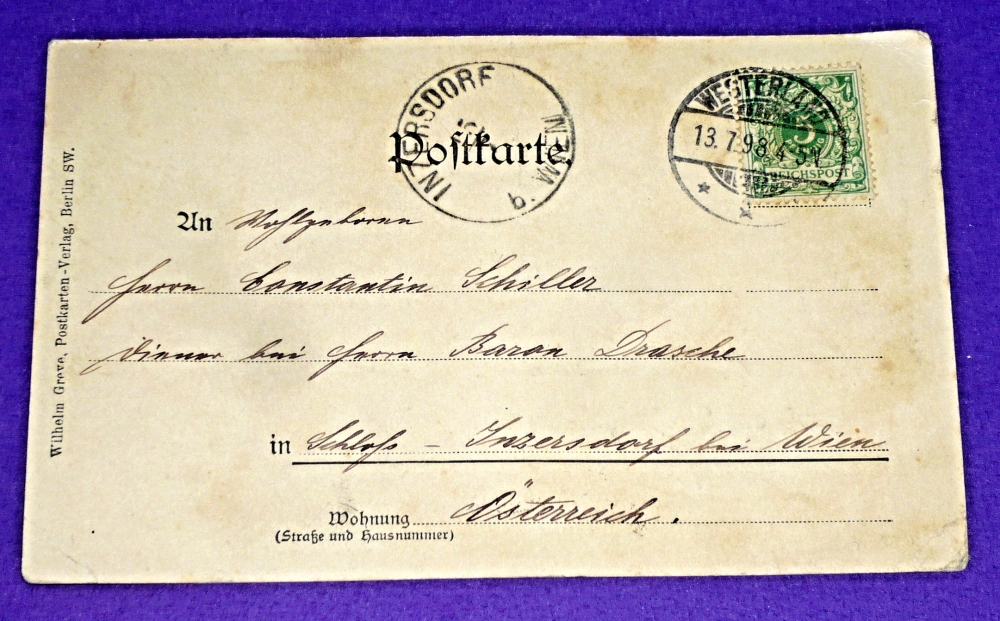 Postkarte.
INZERSDORF b. WIEN
WESTERLAND
13.7.98.4-5N.
5
REICHSPOST
An Wohlgeboren
Herrn Constantin Schiller
Diener bei Herrn Baron Drasche
in Schloß - Inzersdorf bei Wien
Wohnung Österreich.
(Straße und Hausnummer)
Wilhelm Greve, Postkarten-Verlag, Berlin SW.